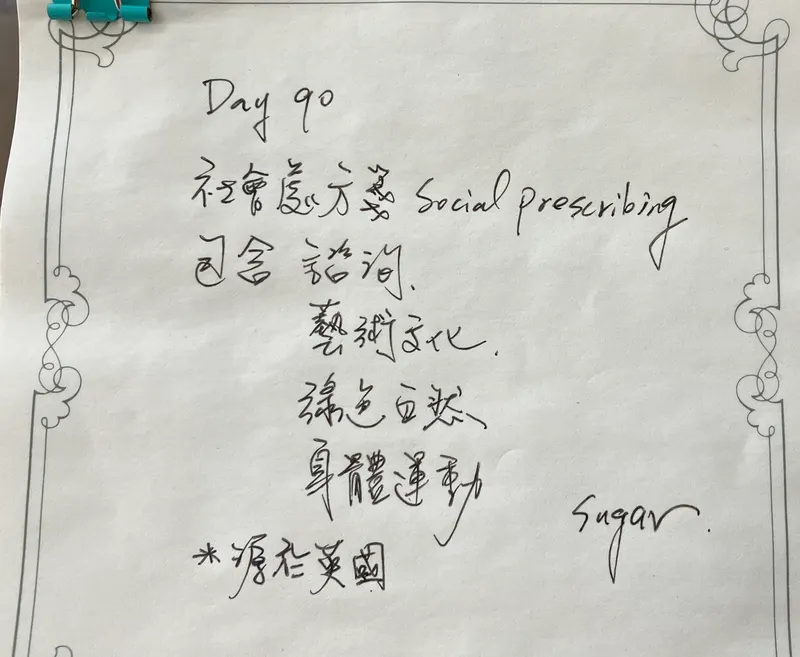 Day 90
社會處方箋 Social prescribing
包含 諮詢、
藝術文化、
綠色自然、
身體運動
Sugar.
*源於英國